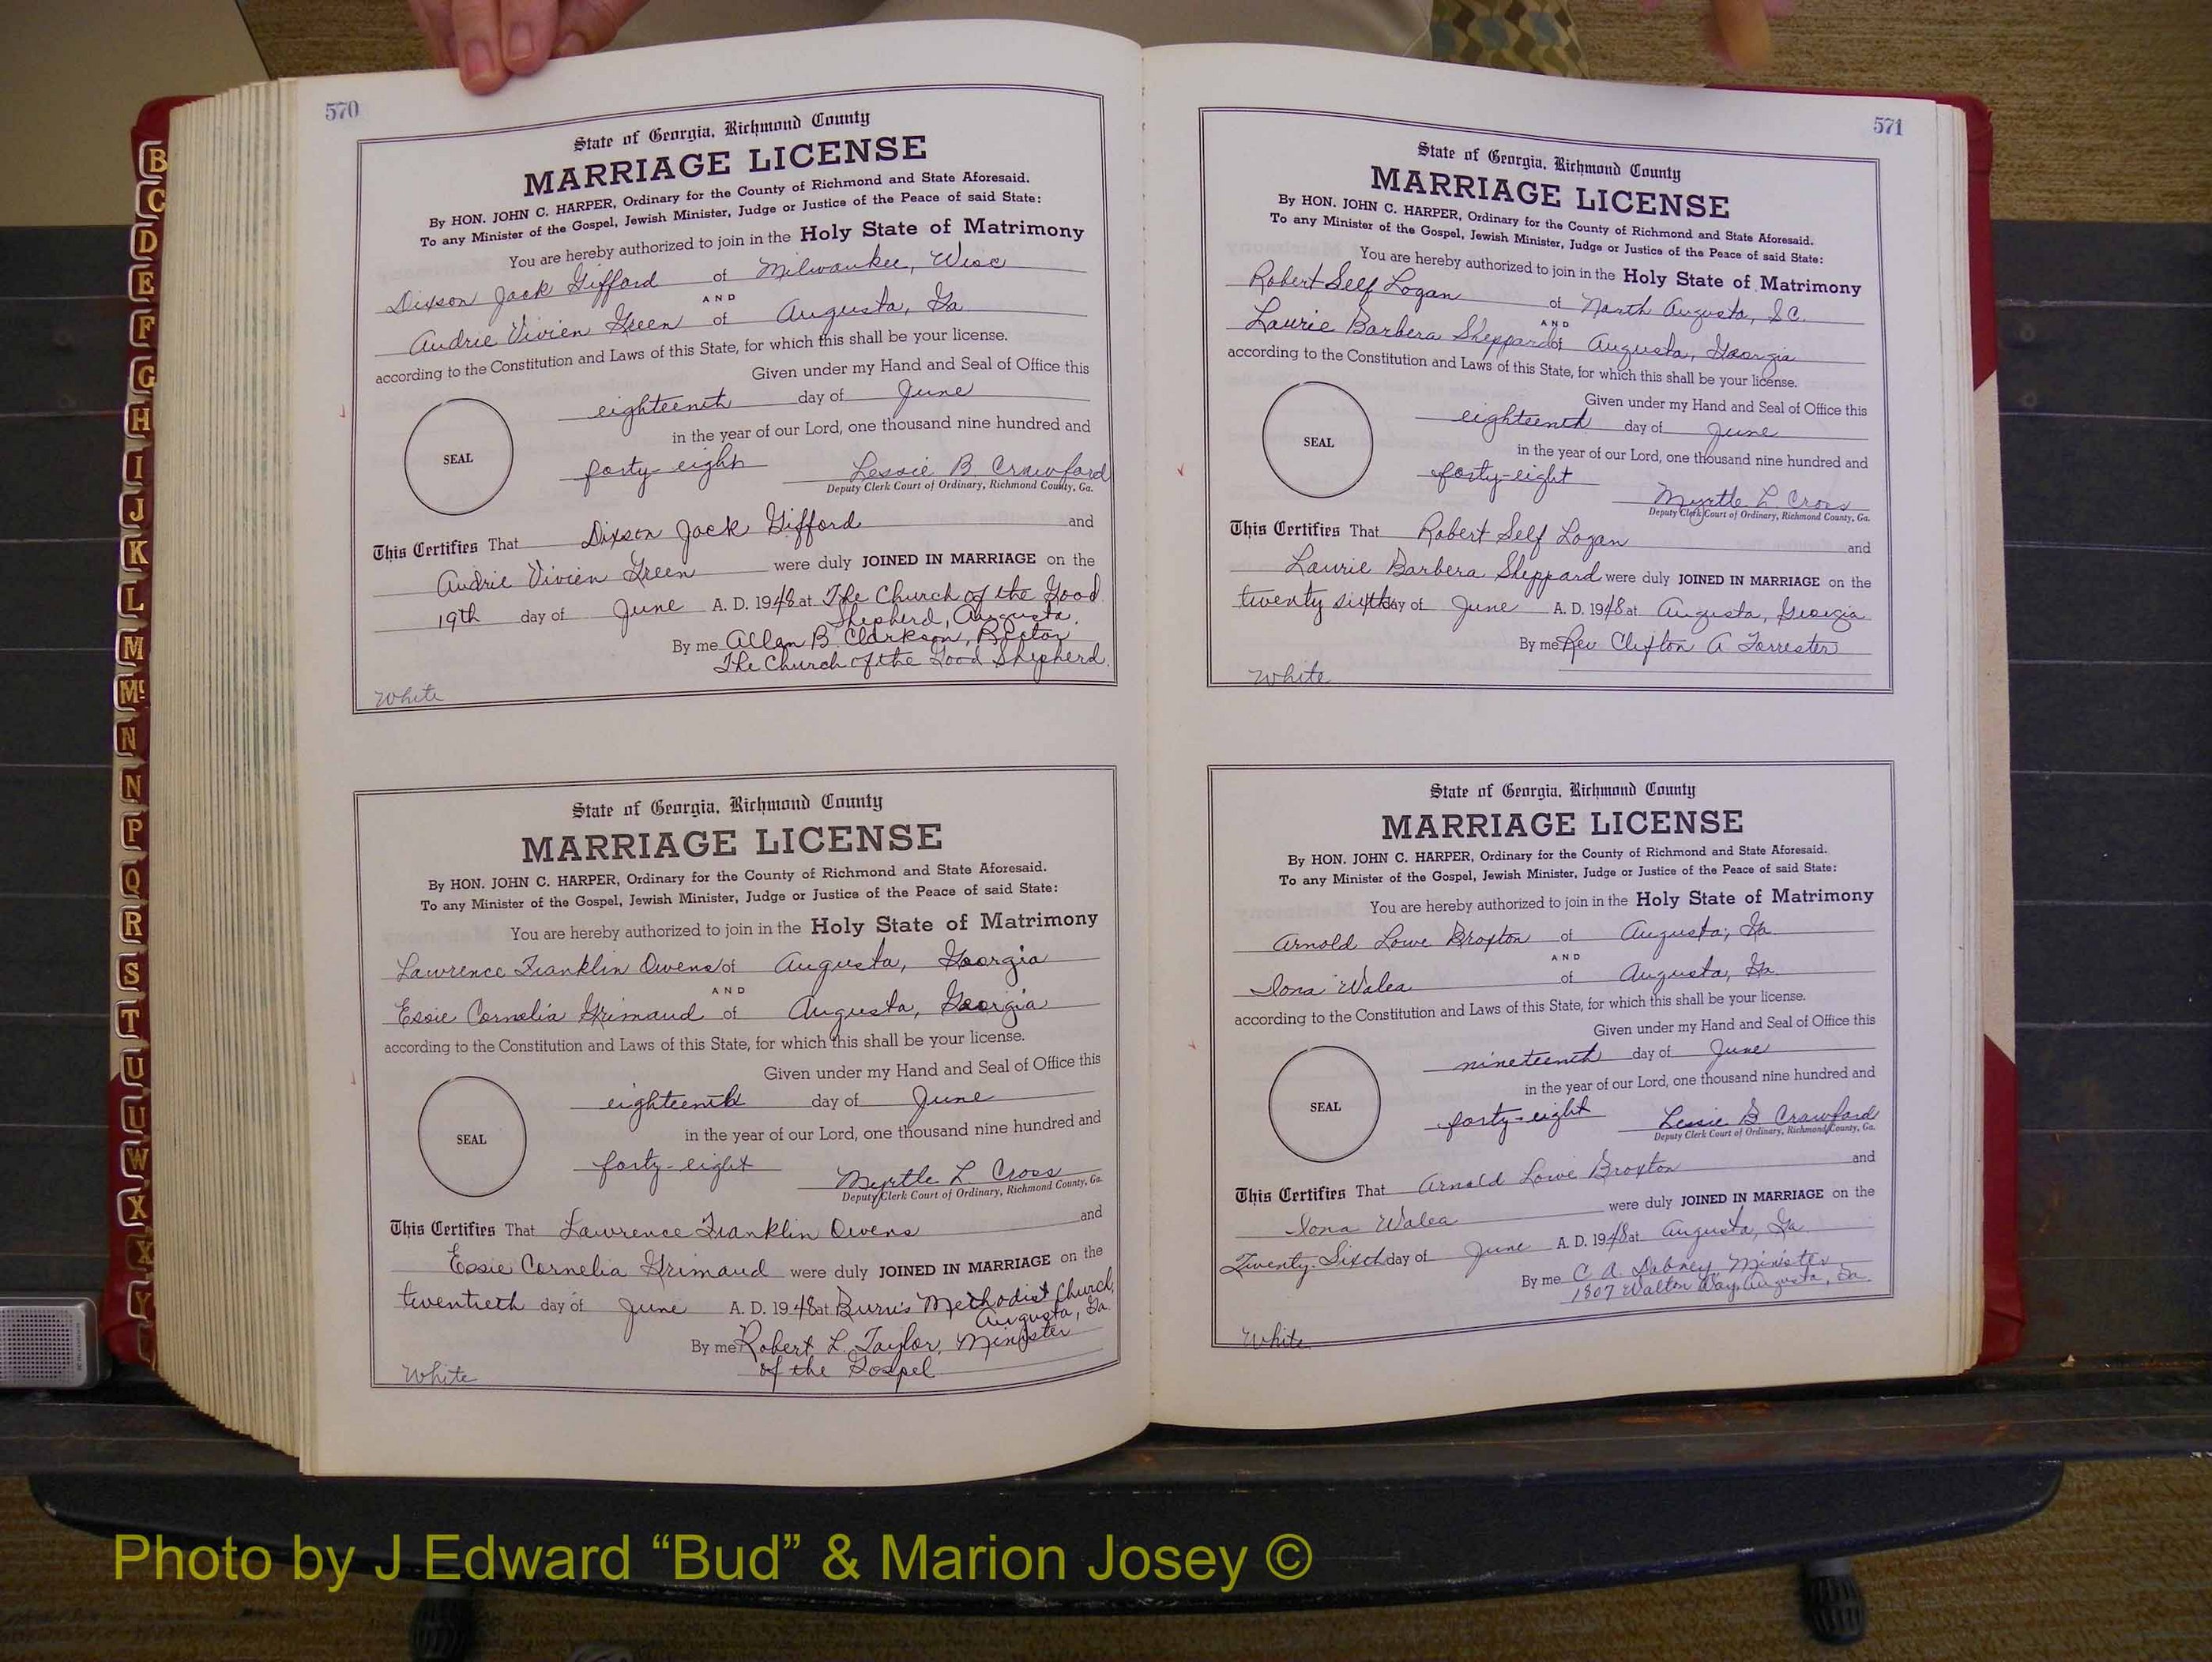 B
C
D
E
F
G
H
I
J
K
L
M
Mc
N
N
P
Q
R
S
T
U
U
W
X
X
Y
570
State of Georgia, Richmond County
MARRIAGE LICENSE
By HON. JOHN C. HARPER, Ordinary for the County of Richmond and State Aforesaid.
To any Minister of the Gospel, Jewish Minister, Judge or Justice of the Peace of said State:
You are hereby authorized to join in the Holy State of Matrimony
Dixson Jack Gifford of Milwaukee, Wisc
AND
Audrie Vivien Green of Augusta, Ga
according to the Constitution and Laws of this State, for which this shall be your license.
Given under my Hand and Seal of Office this
eighteenth day of June
in the year of our Lord, one thousand nine hundred and
SEAL
forty-eight Lessie B Crawford
Deputy Clerk Court of Ordinary, Richmond County, Ga.
This Certifies That Dixson Jack Gifford and
Audrie Vivien Green were duly JOINED IN MARRIAGE on the
19th day of June A. D. 1948 at The Church of the Good
Shepherd, Augusta.
By me Allan B. Clarkson, Rector
The Church of the Good Shepherd.
White
State of Georgia, Richmond County
MARRIAGE LICENSE
By HON. JOHN C. HARPER, Ordinary for the County of Richmond and State Aforesaid.
To any Minister of the Gospel, Jewish Minister, Judge or Justice of the Peace of said State:
You are hereby authorized to join in the Holy State of Matrimony
Lawrence Franklin Owens of Augusta, Georgia
AND
Essie Cornelia Grimaud of Augusta, Georgia
according to the Constitution and Laws of this State, for which this shall be your license.
Given under my Hand and Seal of Office this
eighteenth day of June
in the year of our Lord, one thousand nine hundred and
SEAL
forty-eight Myrtle L. Cross
Deputy Clerk Court of Ordinary, Richmond County, Ga.
This Certifies That Lawrence Franklin Owens and
Essie Cornelia Grimaud were duly JOINED IN MARRIAGE on the
twentieth day of June A. D. 1948 at Burn's Methodist Church,
Augusta, Ga.
By me Robert L. Taylor, Minister
of the Gospel
White
571
State of Georgia, Richmond County
MARRIAGE LICENSE
By HON. JOHN C. HARPER, Ordinary for the County of Richmond and State Aforesaid.
To any Minister of the Gospel, Jewish Minister, Judge or Justice of the Peace of said State:
You are hereby authorized to join in the Holy State of Matrimony
Robert Self Logan of North Augusta, S.C.
AND
Laurie Barbera Sheppard of Augusta, Georgia
according to the Constitution and Laws of this State, for which this shall be your license.
Given under my Hand and Seal of Office this
eighteenth day of June
in the year of our Lord, one thousand nine hundred and
SEAL
forty-eight Myrtle L. Cross
Deputy Clerk Court of Ordinary, Richmond County, Ga.
This Certifies That Robert Self Logan and
Laurie Barbera Sheppard were duly JOINED IN MARRIAGE on the
twenty sixth day of June A. D. 1948 at Augusta, Georgia
By me Rev. Clifton A Forrester
White
State of Georgia, Richmond County
MARRIAGE LICENSE
By HON. JOHN C. HARPER, Ordinary for the County of Richmond and State Aforesaid.
To any Minister of the Gospel, Jewish Minister, Judge or Justice of the Peace of said State:
You are hereby authorized to join in the Holy State of Matrimony
Arnold Lowe Broxton of Augusta, Ga.
AND
Iona Walea of Augusta, Ga.
according to the Constitution and Laws of this State, for which this shall be your license.
Given under my Hand and Seal of Office this
nineteenth day of June
in the year of our Lord, one thousand nine hundred and
SEAL
forty-eight Lessie B Crawford
Deputy Clerk Court of Ordinary, Richmond County, Ga.
This Certifies That Arnold Lowe Broxton and
Iona Walea were duly JOINED IN MARRIAGE on the
Twenty-Sixth day of June A. D. 1948 at Augusta, Ga.
By me C. A. Dabney Minister
1807 Walton Way, Augusta, Ga.
White
Photo by J Edward “Bud” & Marion Josey ©